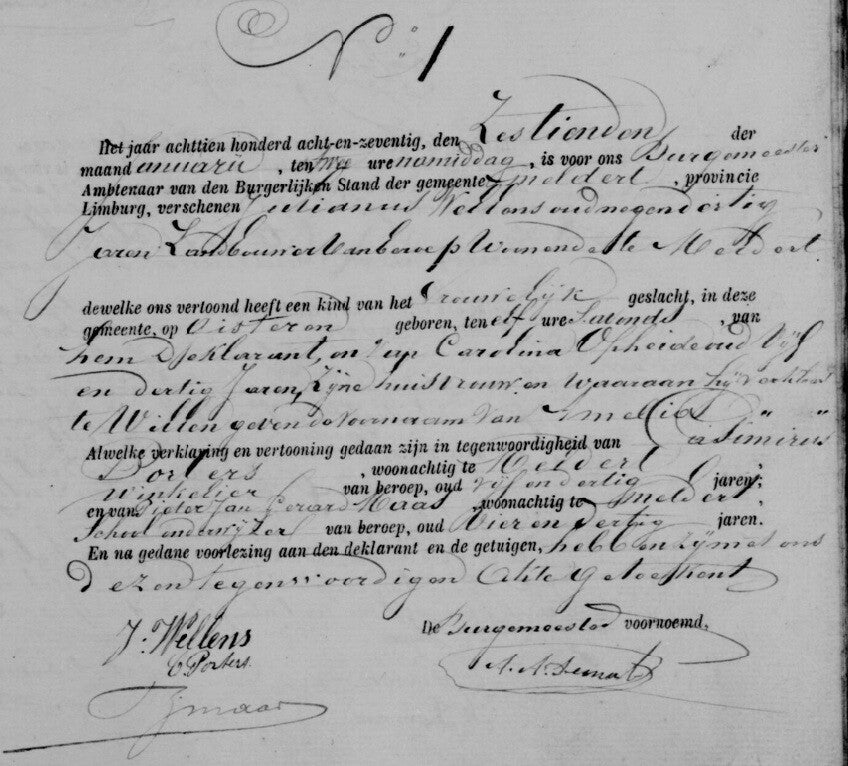 N° 1
Het jaar achttien honderd acht-en-zeventig, den Zestienden der
maand Januarii, ten twee ure namiddag, is voor ons Burgemeester
Ambtenaar van den Burgerlijken Stand der gemeente Meldert, provincie
Limburg, verschenen Julianus Wellens oud negen dertig
Jaren Landbouwer van beroep Woonende te Meldert
dewelke ons vertoond heeft een kind van het Vrouwelijk geslacht, in deze
gemeente, op Gisteren geboren, ten elf ure s'avonds, van
hem Deklarant, en van Carolina Opheide oud vijf
en dertig Jaren, Zijne huisvrouw en waaraan hij verklaart
te Willen geven de Voornaam Van Emelia " "
Alwelke verklaring en vertooning gedaan zijn in tegenwoordigheid van Casimirus
Porters, woonachtig te Meldert,
Winkelier van beroep, oud vijf en dertig jaren;
en van Pieter Jan Gerard Maas, woonachtig te Meldert,
School onderwijzer van beroep, oud Vier en dertig jaren.
En na gedane voorlezing aan den deklarant en de getuigen, hebben zij met ons
dezen tegenwoordigen Akte Geteekent
De Burgemeester voornoemd.
J. Wellens
C. Porters.